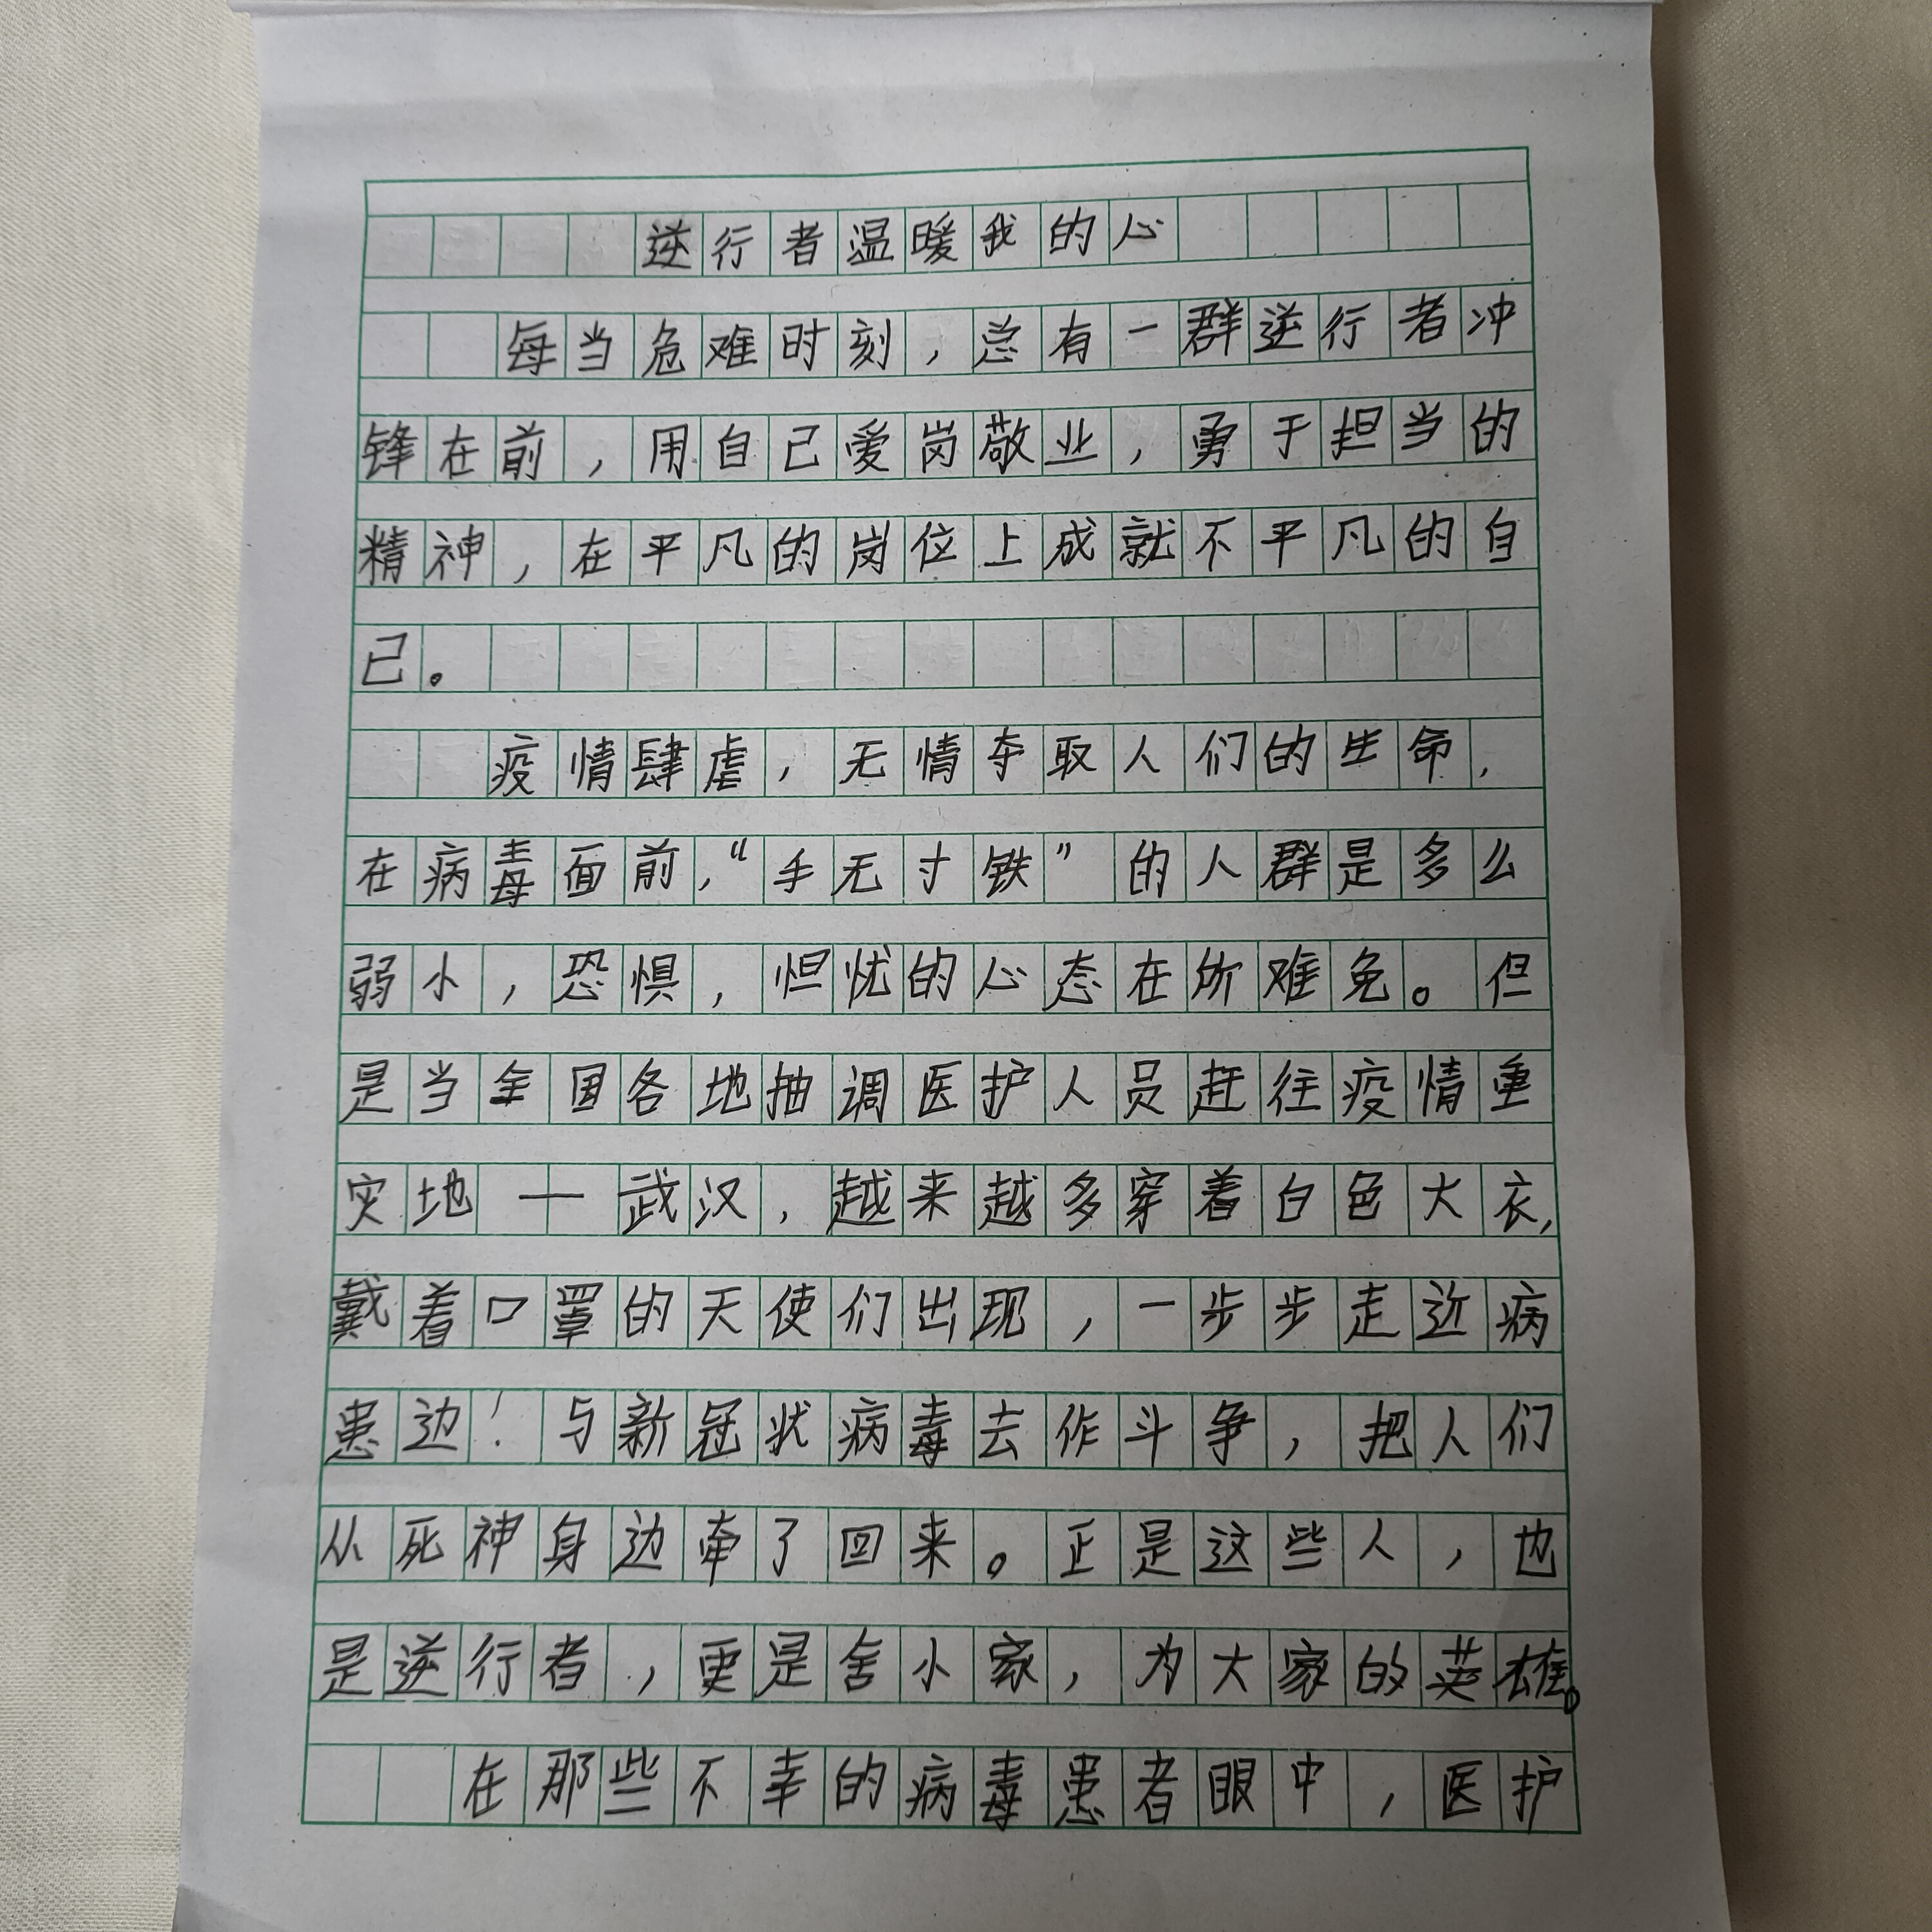 逆行者温暖我的心
每当危难时刻，总有一群逆行者冲
锋在前，用自己爱岗敬业，勇于担当的
精神，在平凡的岗位上成就不平凡的自
己。
疫情肆虐，无情夺取人们的生命，
在病毒面前，“手无寸铁”的人群是多么
弱小，恐惧，怛忧的心态在所难免。但
是当全国各地抽调医护人员赶往疫情重
灾地——武汉，越来越多穿着白色大衣，
戴着口罩的天使们出现，一步步走近病
患边！与新冠状病毒去作斗争，把人们
从死神身边牵了回来。正是这些人，也
是逆行者，更是舍小家，为大家的英雄。
在那些不幸的病毒患者眼中，医护